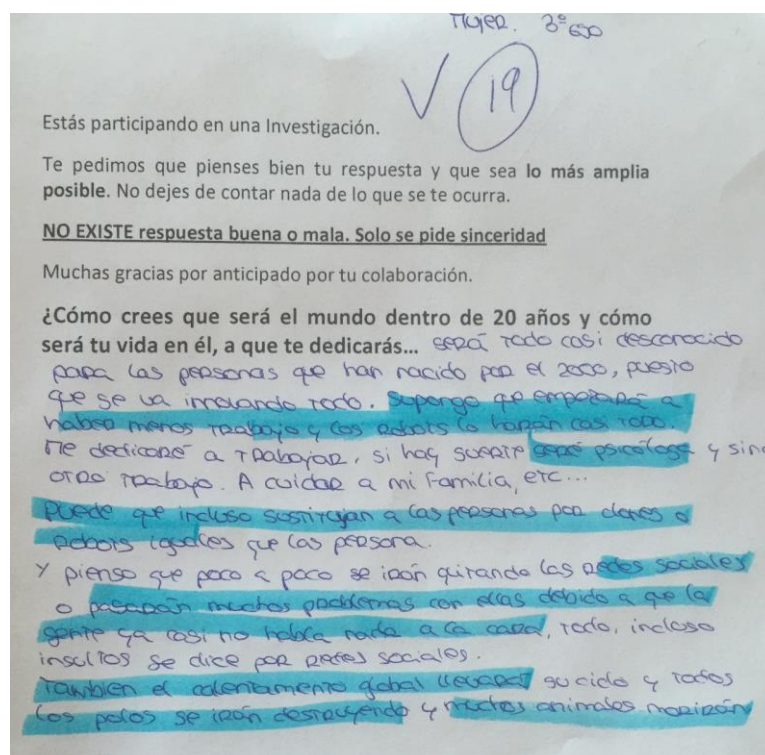 Mujer. 3º ESO
V 19
Estás participando en una Investigación.
Te pedimos que pienses bien tu respuesta y que sea lo más amplia
posible. No dejes de contar nada de lo que se te ocurra.
NO EXISTE respuesta buena o mala. Solo se pide sinceridad
Muchas gracias por anticipado por tu colaboración.
¿Cómo crees que será el mundo dentro de 20 años y cómo
será tu vida en él, a que te dedicarás... será todo casi desconocido
para las personas que han nacido por el 2000, puesto
que se va innovando todo. Supongo que empezará a
haber menos trabajo y los robots lo harán casi todo.
Me dedicaré a trabajar, si hay suerte seré psicóloga y sino
otro trabajo. A cuidar a mi familia, etc...
Puede que incluso sustituyan a las personas por clones o
robots iguales que las persona.
Y pienso que poco a poco se irán quitando las redes sociales
o pasarán muchos problemas con ellas debido a que la
gente ya casi no habla nada a la cara, todo, incluso
insultos se dice por redes sociales.
También el calentamiento global llegará su ciclo y todos
los polos se irán destruyendo y muchos animales morirán